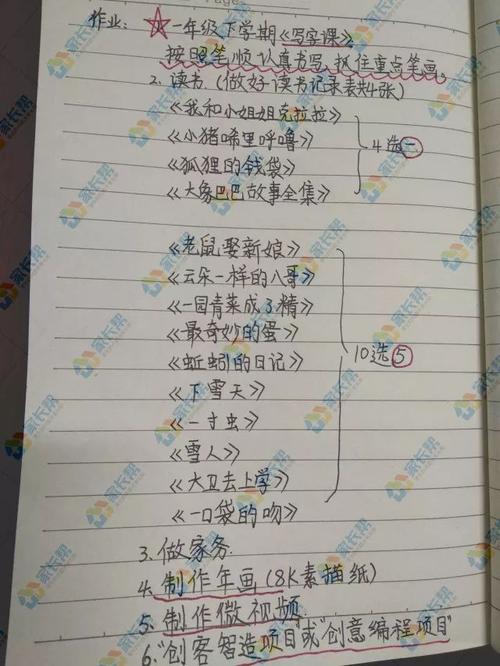 作业: ☆一年级下学期《写字课》
按照笔顺认真书写,抓住重点笔画。
2. 读书 (做好读书记录表共4张)
《我和小姐姐克拉拉》
《小猪唏里呼噜》
4选一
《狐狸的钱袋》
《大象巴巴故事全集》
《老鼠娶新娘》
《云朵一样的八哥》
《一园青菜成了精》
《最奇妙的蛋》
10选5
《蚯蚓的日记》
《下雪天》
《一寸虫》
《雪人》
《大卫去上学》
《一口袋的吻》
3. 做家务
4. 制作年画 (8K素描纸)
5. 制作微视频
6. "创客智造项目或"创意编程项目"
家长帮